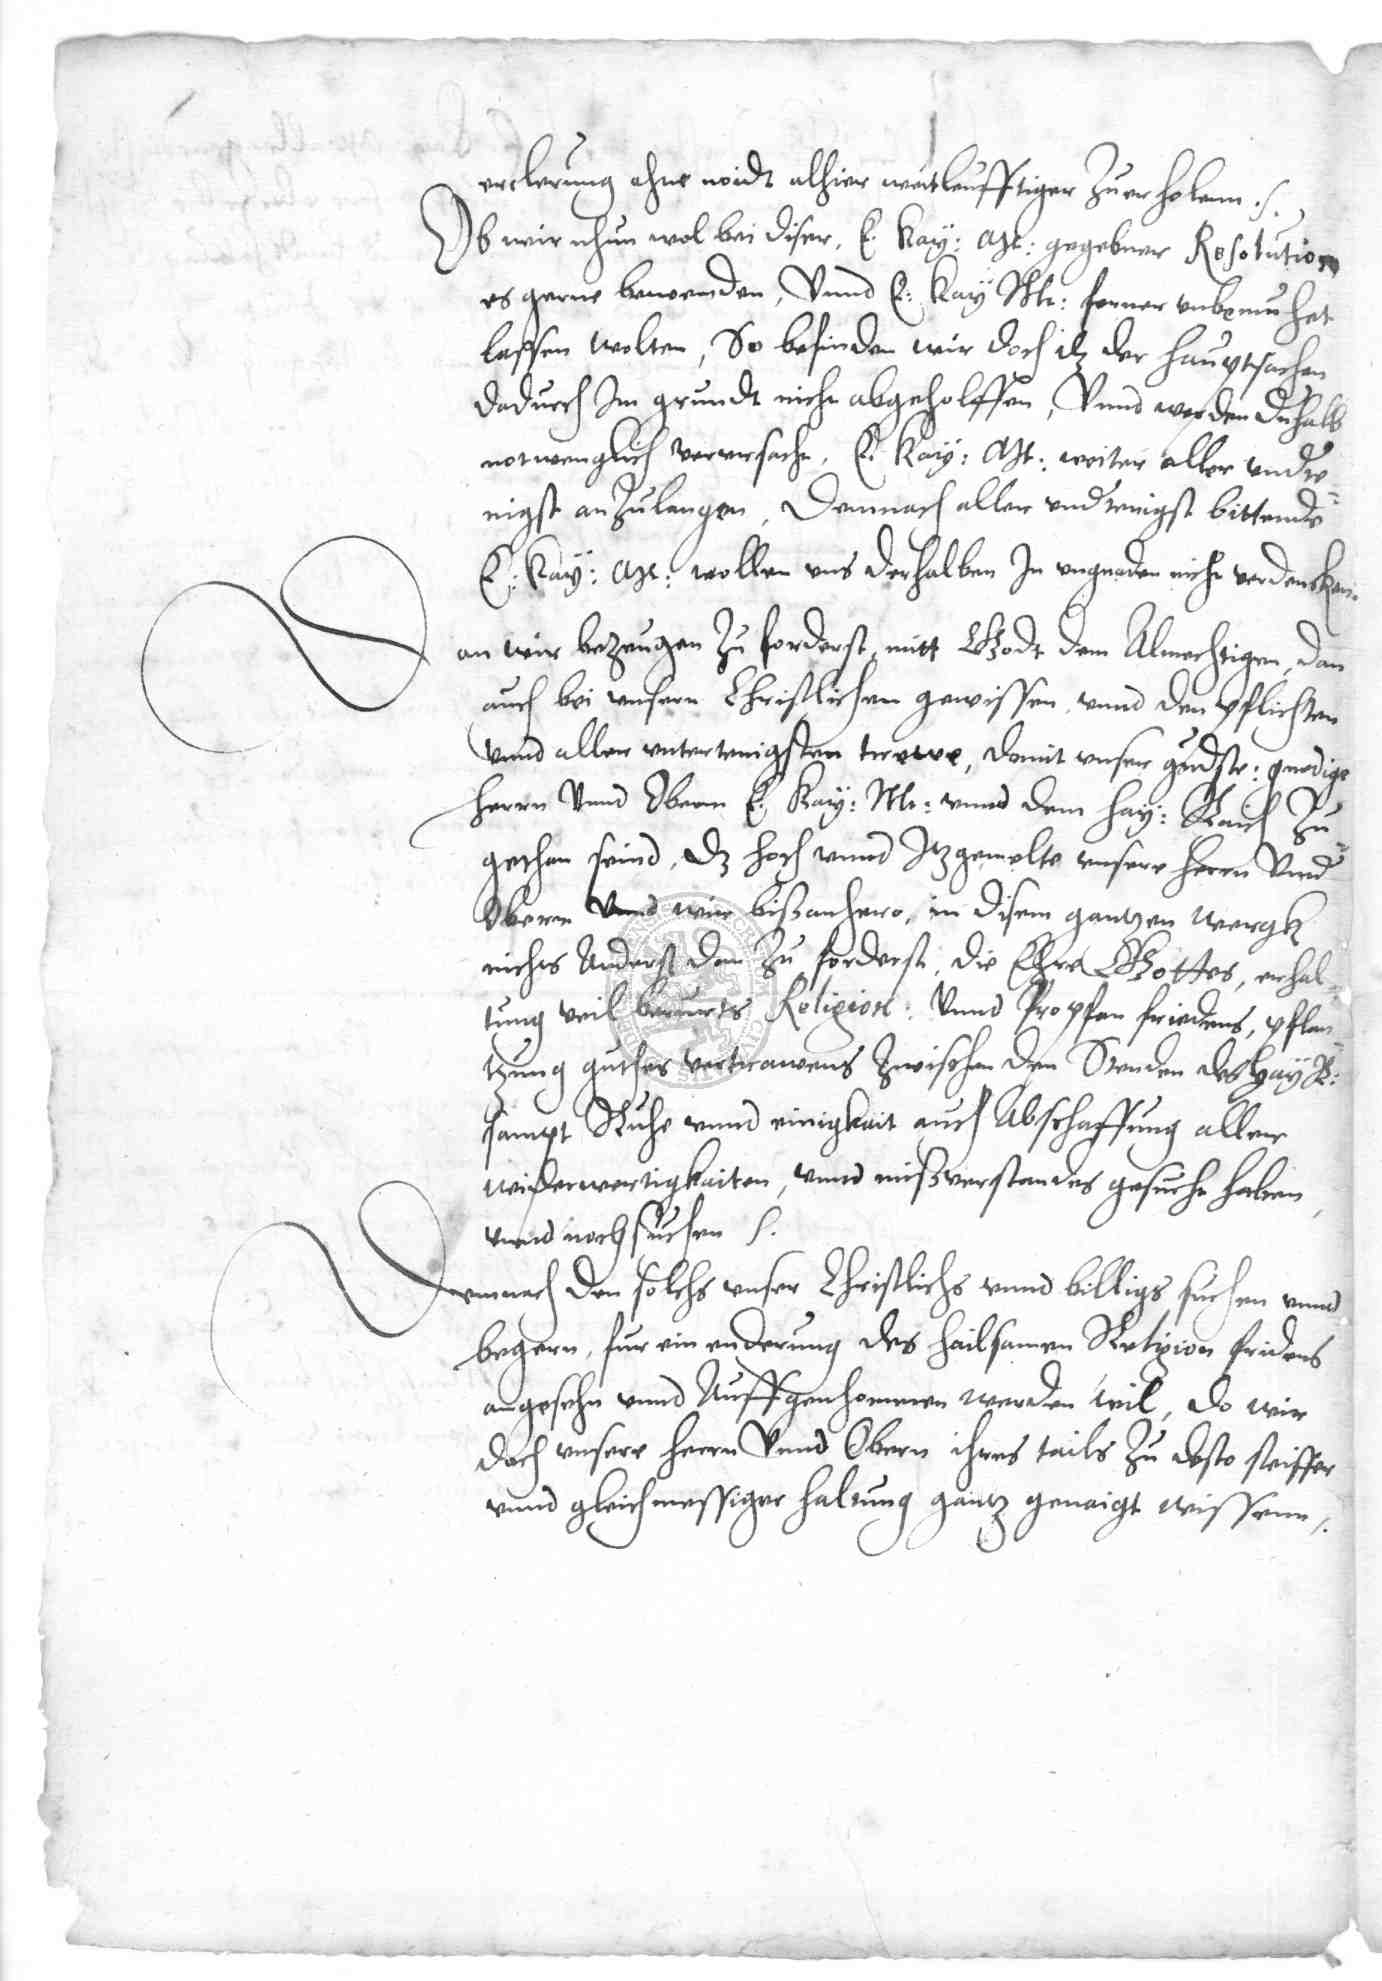 erclerung ohne noidt alhier weitleufftiger Zuerholenn /.
Ob wir nhun wol bei diser, E. Kay: Mt: gegebner Resolution
es gerne bewenden, Vnnd E: Kay Mt: ferner vnbemuhet
lassen wolten, So befinden wir doch dz der hauptsachen
dadurch Im grundt nicht abgeholffen, Vnnd werden deshalb
notwenglich verursacht, E. Kay: Mt: weiter aller vndte-
nigst anZulangen, Demnach aller vndtenigst bittende
E: Kay: Mt: wollen vns derhalben In vngnaden nicht verdencken
Dan wir bezeugen Zu forderst, mitt Godt dem Almechtigen, dan
auch bei vnsern Christlichen gewissen, vnnd den pflichten
vnnd aller vntertenigsten trewe, damit vnser gndste: gnedige
herrn Vnnd Obern E. Kay: Mt: vnnd dem hay: Reich Zu-
gethan seind, Dz hoch vnnd Itzgemelte vnsere herrn Vnd
Obern Vnnd wir bißanhero, in disem gantzen Wergk
nichts Anderst dan Zu forderst, die Ehre Gottes, erhal-
tung veil berurts Religion: Vnnd Prophan friedens, pflan-
tzung guthes vertrawens Zwischen den Stenden des hay R:
sampt Ruhe vnnd einigkait auch Abschaffung aller
widerwertigkaiten, vnnd mißverstandes gesucht haben,
vnnd noch suchen /.
Demnach den solchs vnser Christlichs vnnd billigs suchen vnnd
begern, fur ein enderung des hailsamen Religion fridens
angesehn vnnd Auffgenhommen werden wil, do wir
doch vnsere herrn Vnnd Obern ihres tails Zu desto steiffer
vnnd gleichmessiger haltung gantz genaigt wissenn /.